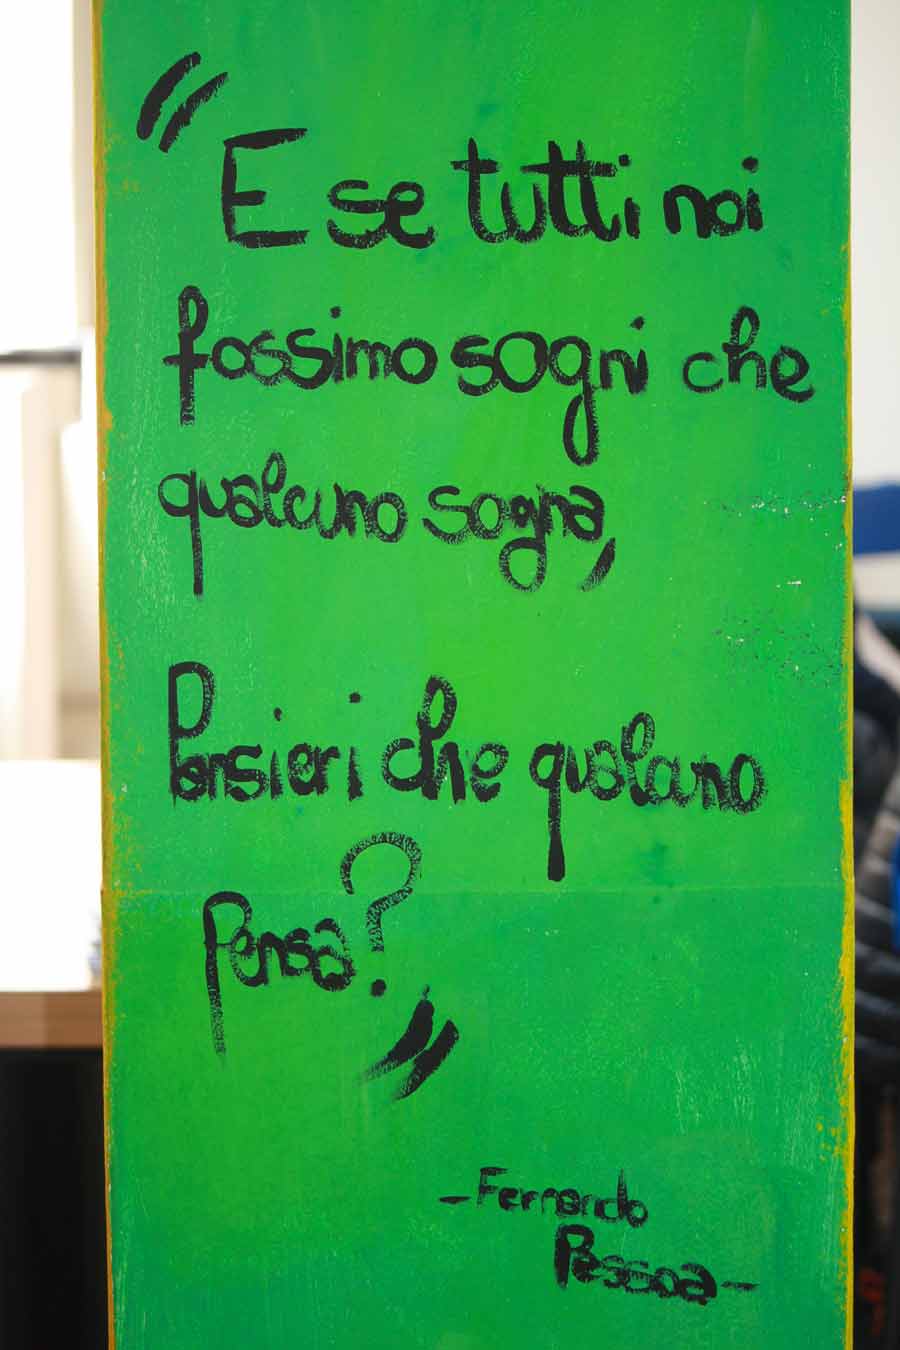 "E se tutti noi
fossimo sogni che
qualcuno sogna,
Pensieri che qualcuno
pensa?"
-Fernando
Pessoa-